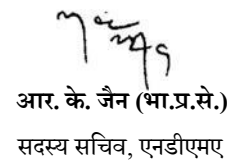 आर. के. जैन (भा.प्र.से.)
सदस्य सचिव, एनडीएमए